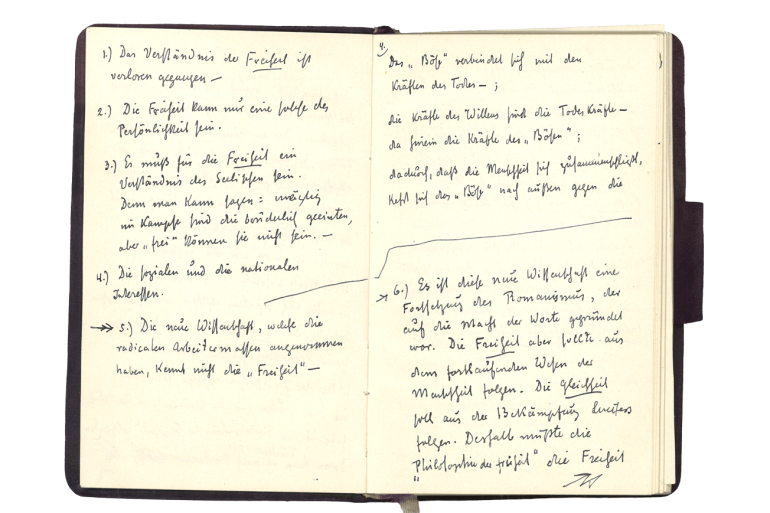 1.) Das Verständnis der Freiheit ist
verloren gegangen —
2.) Die Freiheit kann nur eine solche des
Persönlichkeit sein.
3.) Es muß für die Freiheit ein
Verständnis des Seelischen sein.
Denn man kann sagen: mächtig
im Kampfe sind die brüderlich geeinten,
aber „frei" können sie nicht sein. —
4.) Die sozialen und die nationalen
Interessen.
5.) Die neue Wissenschaft, welche die
radicalen Arbeitermassen angenommen
haben, kennt nicht die „Freiheit" —
4.
Das „Böse" verbindet sich mit den
Kräften des Todes — ;
die Kräfte des Willens sind die Todeskräfte —
da hinein die Kräfte des „Bösen" ;
dadurch, daß die Menschheit sich zusammenschließt,
kehrt sich das „Böse" nach außen gegen die
6.) Es ist diese neue Wissenschaft eine
Fortsetzung des Romanismus, der
auf die Macht der Worte gegründet
war. Die Freiheit aber sollte aus
dem fortlaufenden Wesen der
Menschheit folgen. Die Gleichheit
soll aus der Bekämpfung Lucifers
folgen. Deshalb mußte die
„Philosophie der Freiheit" die Freiheit